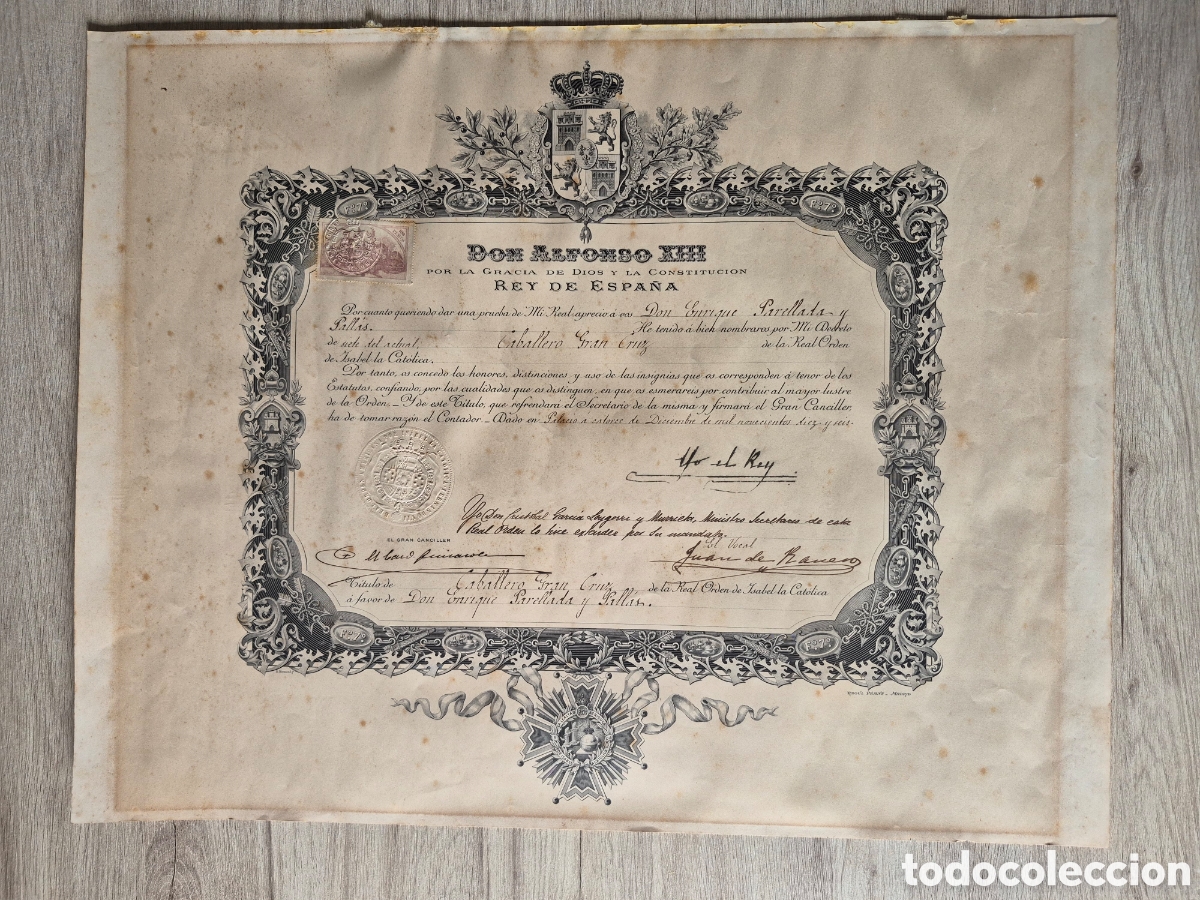 DON ALFONSO XIII
POR LA GRACIA DE DIOS Y LA CONSTITUCION
REY DE ESPAÑA
Por cuanto queriendo dar una prueba de Mi Real aprecio á vos Don Enrique Parellada y
Pallás. He tenido á bien nombraros por Mi Decreto
de siete del actual, Caballero Gran Cruz de la Real Orden
de Isabel la Católica.
Por tanto, os concedo los honores, distinciones y uso de las insignias que os corresponden á tenor de los
Estatutos, confiando, por las cualidades que os distinguen, en que os esmerareis por contribuir al mayor lustre
de la Orden.- Y de este Título, que refrendará el Secretario de la misma y firmará el Gran Canciller,
ha de tomar razón el Contador.- Dado en Palacio a catorce de Diciembre de mil novecientos diez y seis.
Yo el Rey
Yo, Don Cristobal García Loygorri y Murrieta, Ministro Secretario de esta
Real Orden lo hice extender por su mandato.
EL GRAN CANCILLER
Juan de
Título de Caballero Gran Cruz, de la Real Orden de Isabel la Católica
á favor de Don Enrique Parellada y Pallás.
todocoleccion